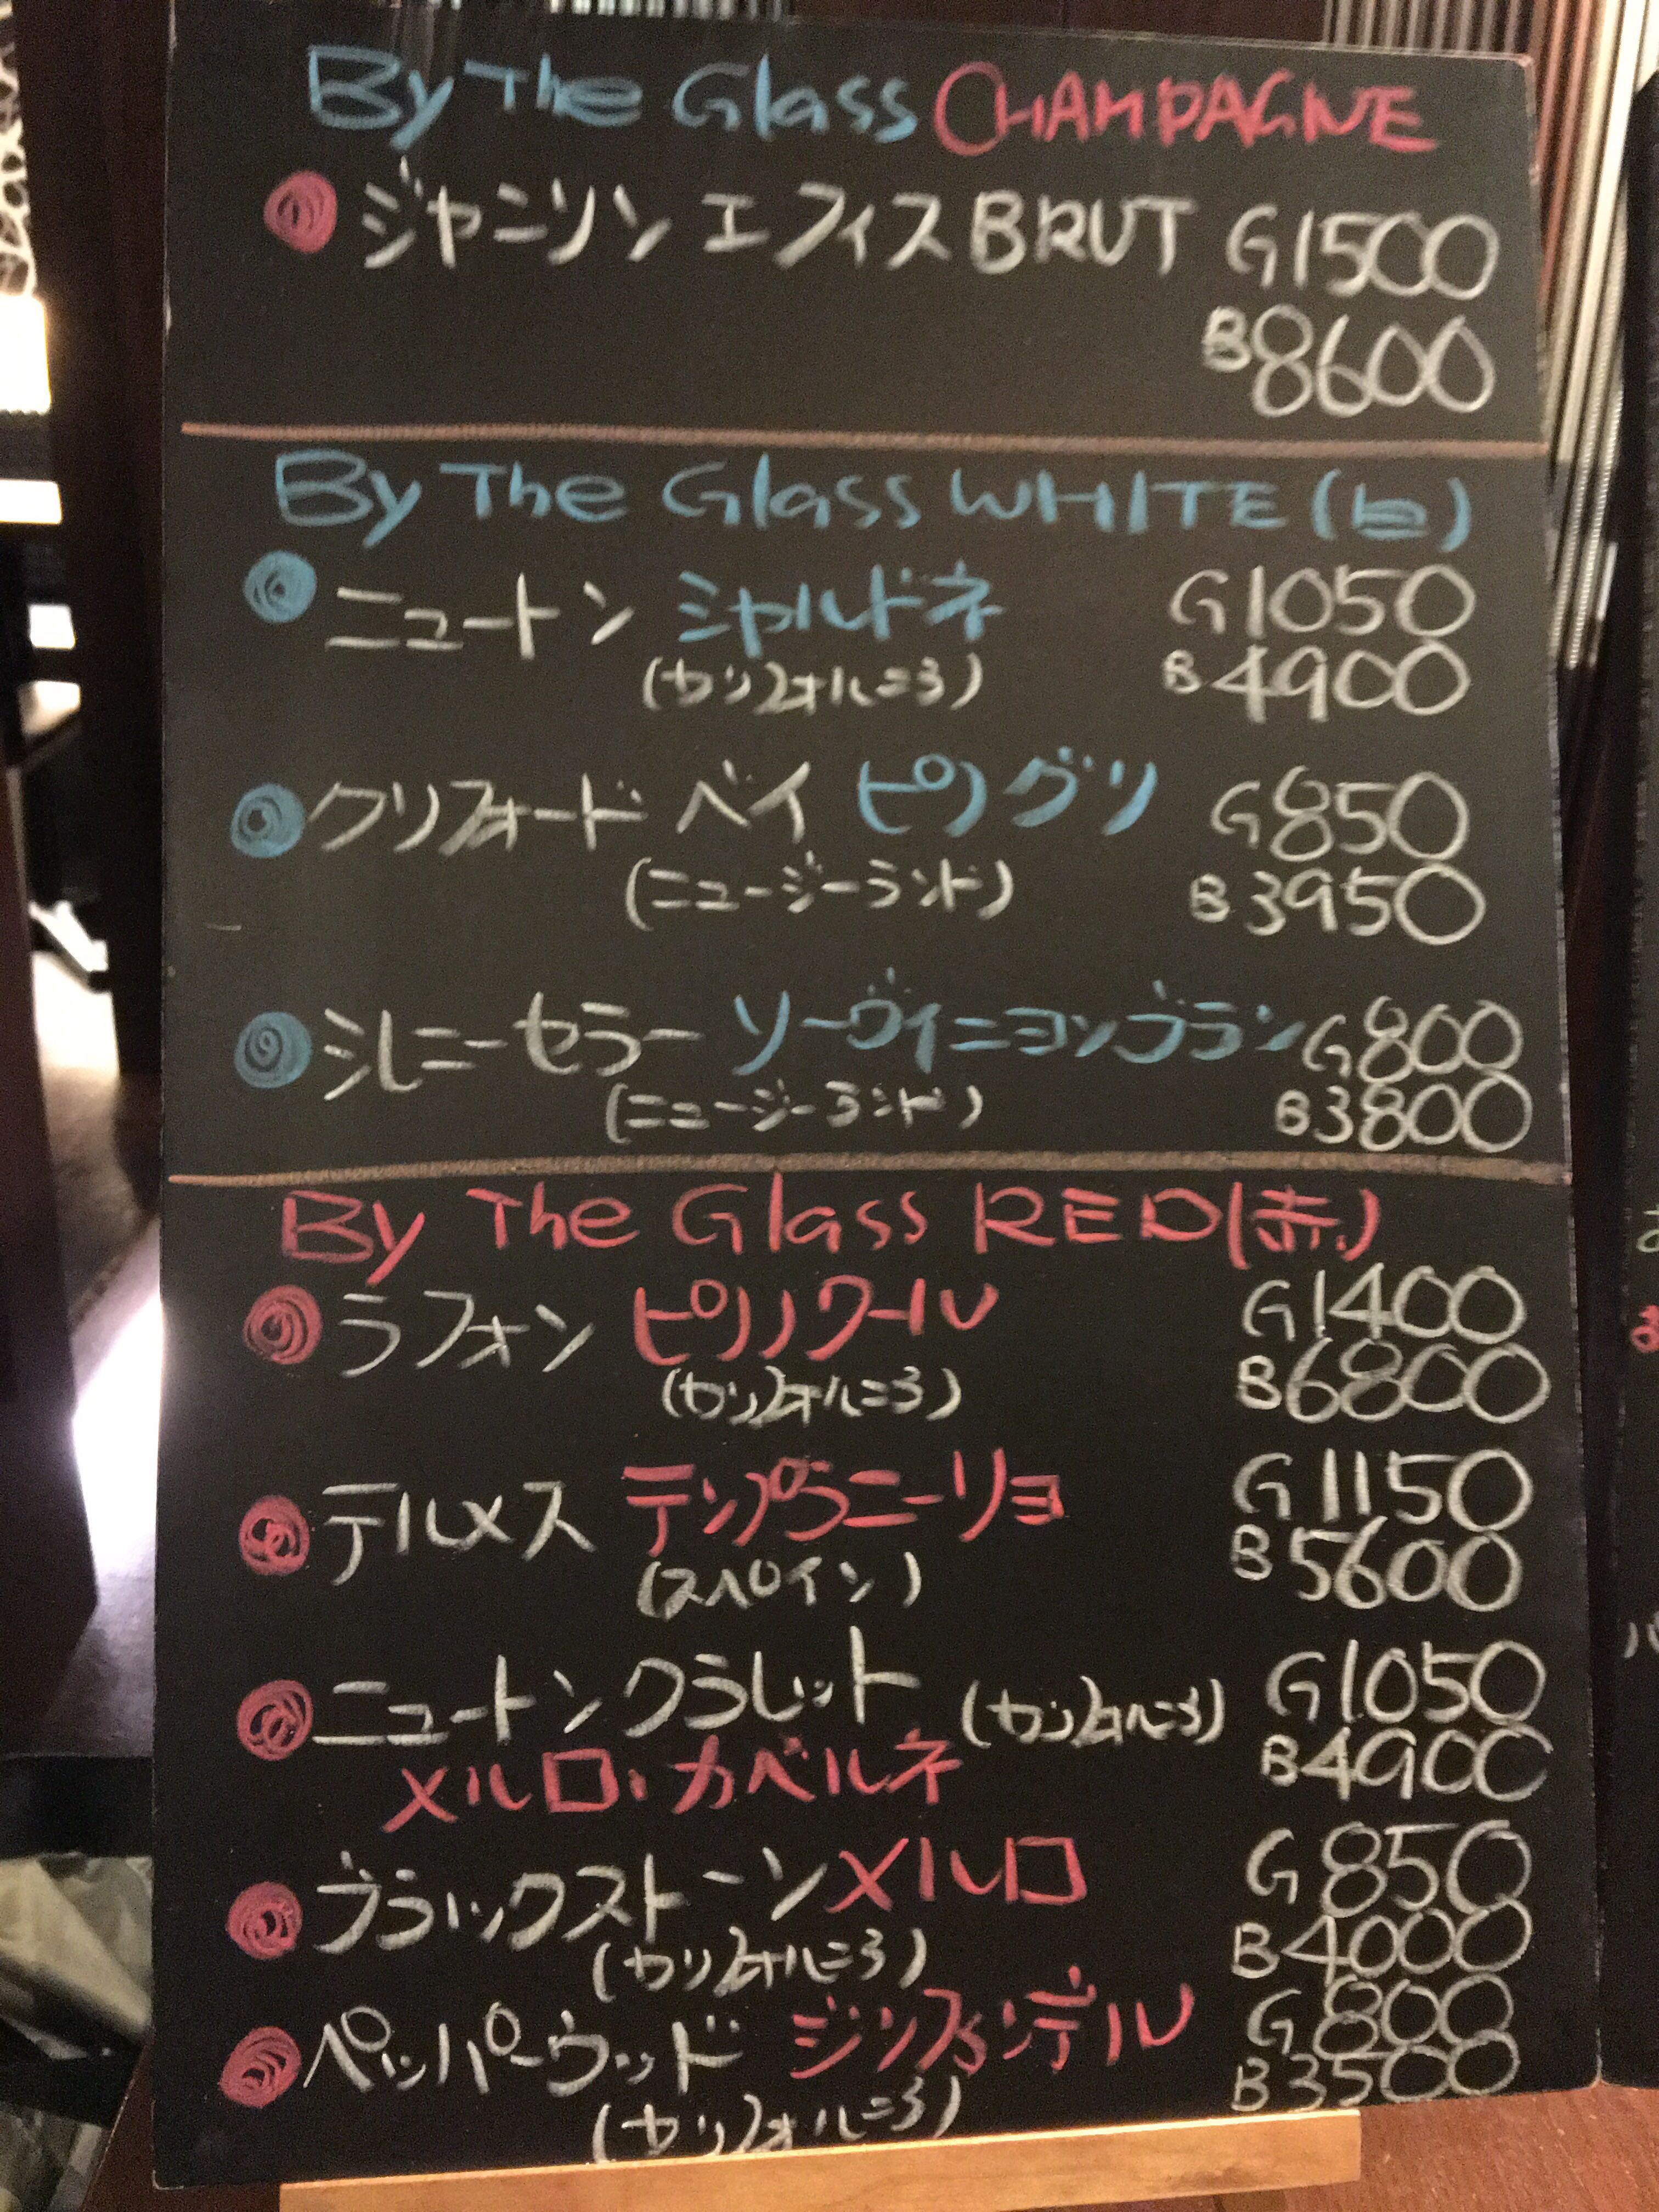 By The Glass CHAMPAGNE
ジャニソン エフィス BRUT G1500
B8600
By The Glass WHITE (白)
ニュートン シャルドネ G1050
(カリフォルニア) B4900
クリフォード ベイ ピノグリ G850
(ニュージーランド) B3950
シレニーセラー ソーヴィニヨンブラン G800
(ニュージーランド) B3800
By The Glass RED (赤)
ラフォン ピノノワール G1400
(カリフォルニア) B6800
テルメス テンプラニーリョ G1150
(スペイン) B5600
ニュートンクラレット (カリフォルニア) G1050
メルロ、カベルネ B4900
ブラックストーンメルロ G850
(カリフォルニア) B4000
ペッパーウッド ジンファンデル G800
(カリフォルニア) B3500